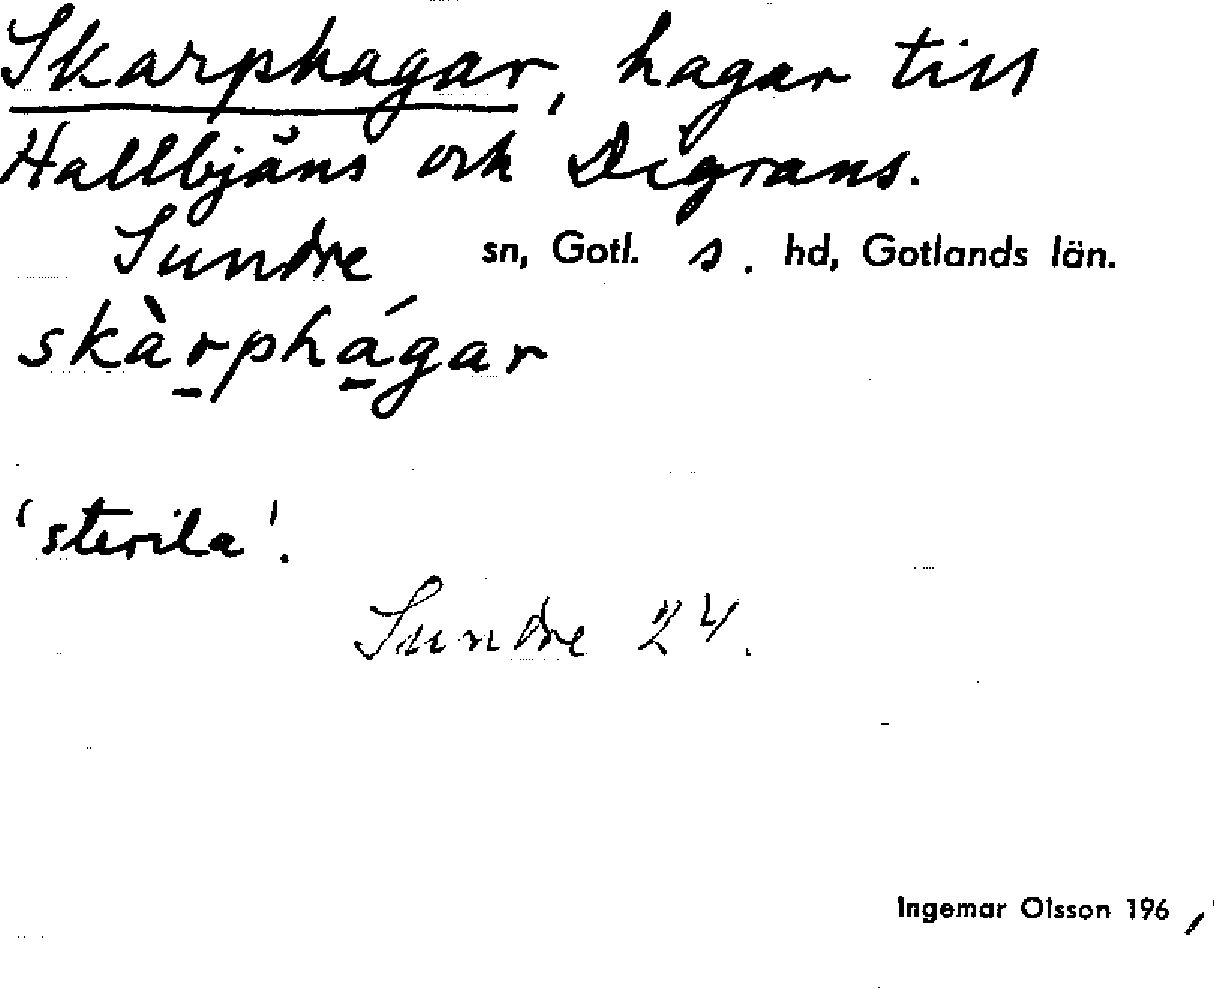 Skarphagar, hagar till
Hallbjäns och Digrans.
Sundre sn, Gotl. s. hd, Gotlands län.
skàrphágar
'sterila'.
Sundre 24.
Ingemar Olsson 196